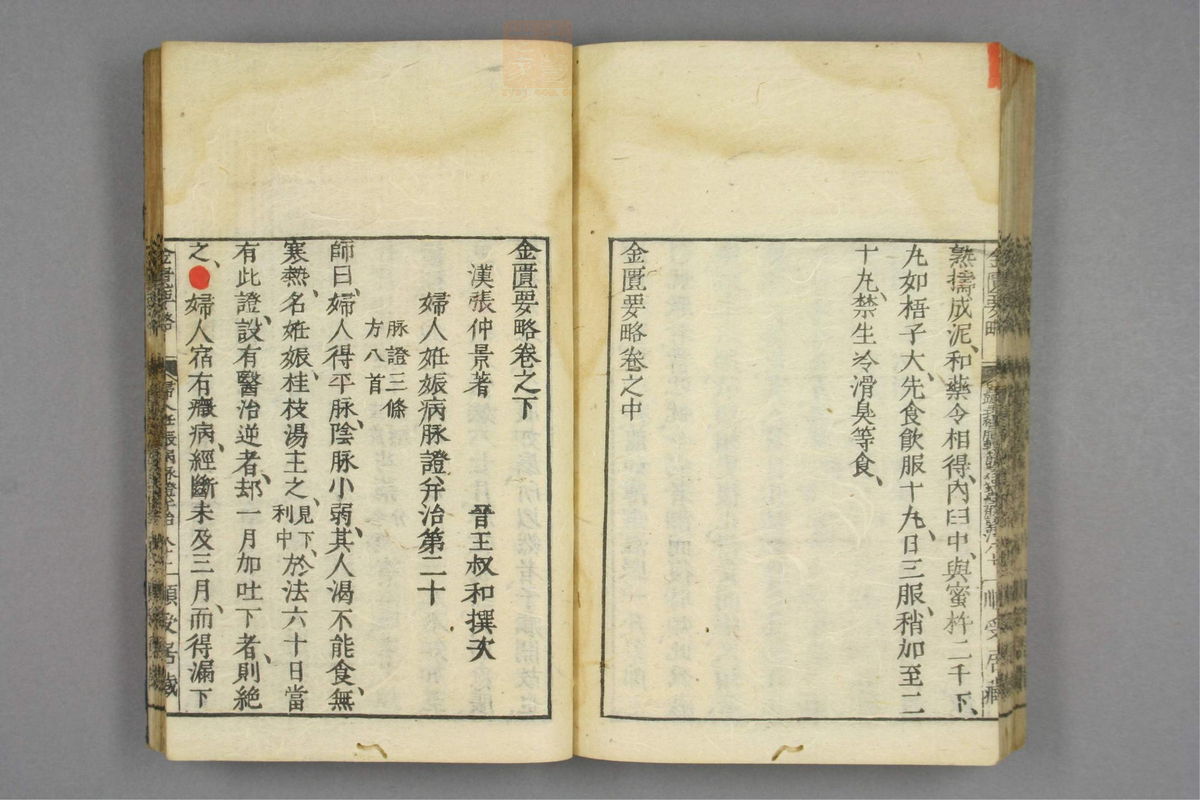 熟擣成泥、和藥令相得、內臼中、與蜜杵二千下、
丸如梧子大、先食飲服十丸、日三服、稍加至二
十丸、禁生冷滑臭等食、
金匱要略卷之中
金匱要略卷之下
漢張仲景著　晉王叔和撰次
婦人姙娠病脉證幷治第二十
脉證三條
方八首
師曰、婦人得平脉、陰脉小弱、其人渴不能食、無
寒熱、名姙娠、桂枝湯主之、見下利中、於法六十日當
有此證、設有醫治逆者、却一月加吐下者、則絕
之、婦人宿有癥病、經斷未及三月、而得漏下